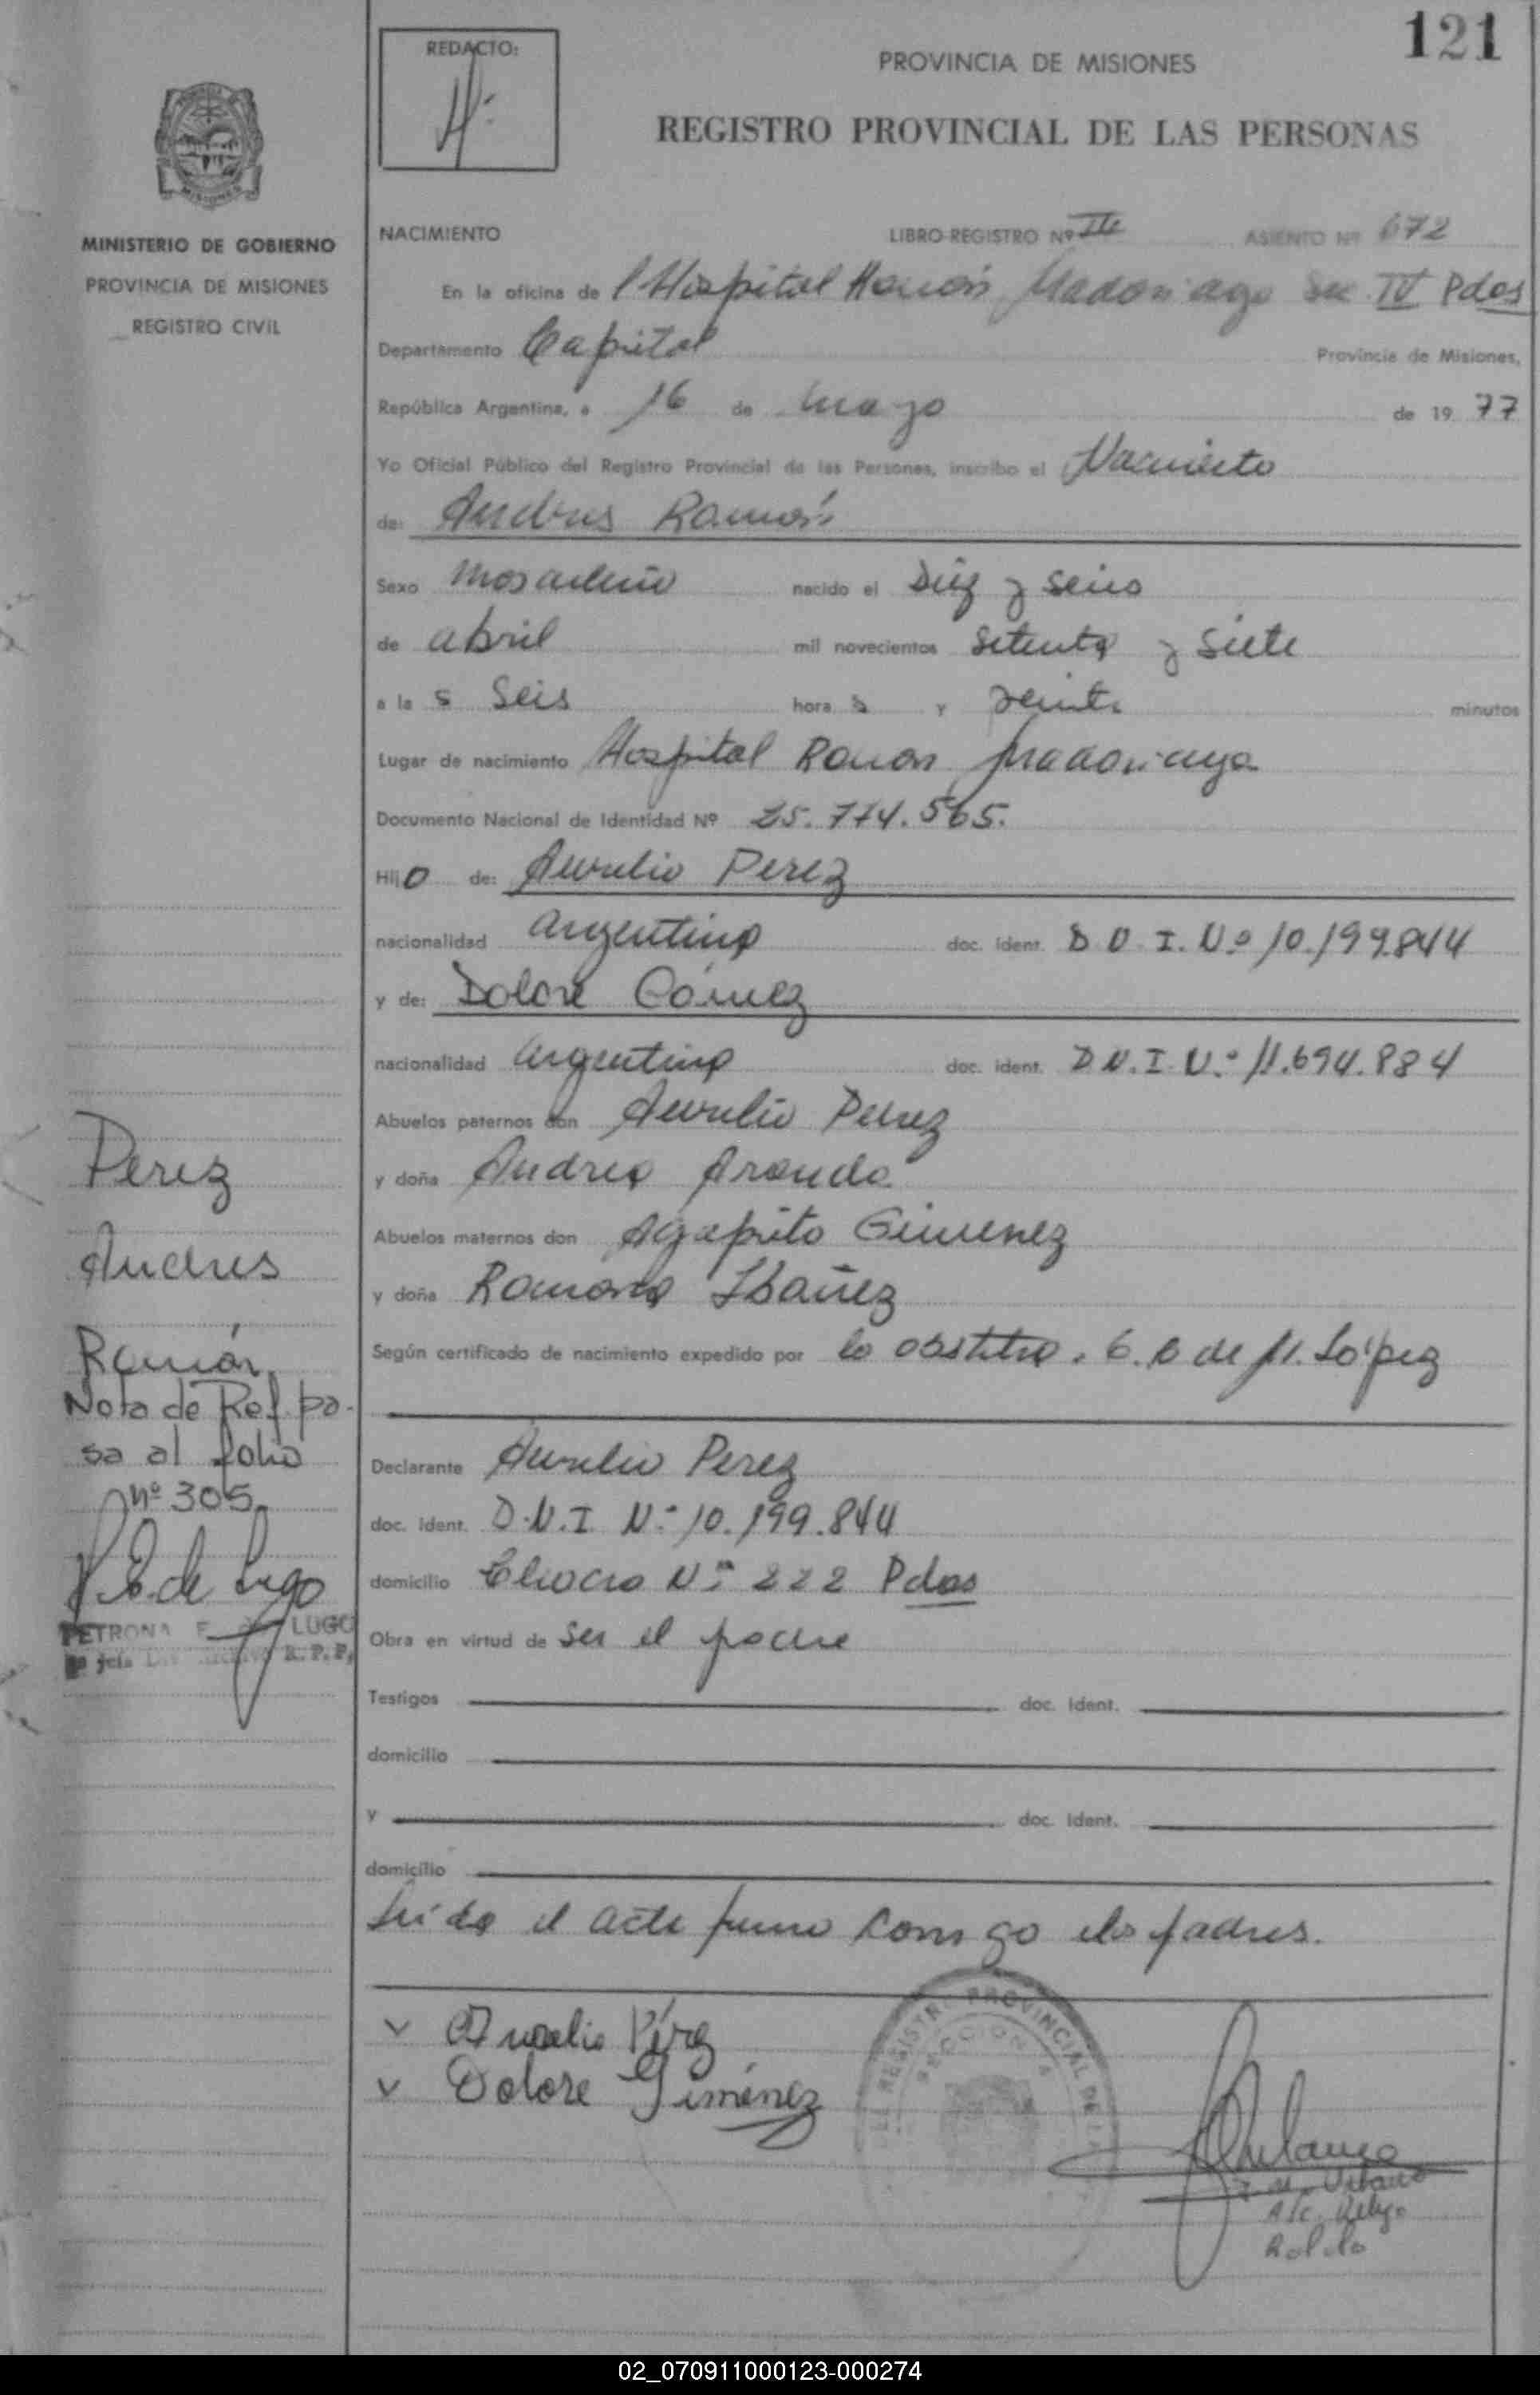 121
REDACTO:
PROVINCIA DE MISIONES
REGISTRO PROVINCIAL DE LAS PERSONAS
MINISTERIO DE GOBIERNO
PROVINCIA DE MISIONES
REGISTRO CIVIL
NACIMIENTO LIBRO-REGISTRO Nº III ASIENTO Nº 672
En la oficina de l Hospital Ramón Madariaga Sec IV Pdas
Departamento Capital Provincia de Misiones,
República Argentina, a 16 de mayo de 19 77
Yo Oficial Público del Registro Provincial de las Personas, inscribo el Nacimiento
de: Andres Ramón
Sexo Masculino nacido el Diez y seis
de abril mil novecientos setenta y siete
a la s Seis hora s y veinte minutos
Lugar de nacimiento Hospital Ramon Madariaga
Documento Nacional de Identidad Nº 25.774.565.
Hijo de: Aurelio Perez
nacionalidad argentina doc. ident. D.N.I. Nº 10.199.844
y de: Dolore Gómez
nacionalidad argentina doc. ident. D.N.I. Nº 11.694.884
Abuelos paternos don Aurelio Perez
y doña Andrea Aranda
Abuelos maternos don Agapito Gimenez
y doña Ramona Ibañez
Según certificado de nacimiento expedido por la obstetra. de M. López
Declarante Aurelio Perez
doc. ident. D.N.I. Nº 10.199.844
domicilio Nº 222 Pdas
Obra en virtud de ser el padre
Testigos doc. ident.
domicilio
y doc. ident.
domicilio
Leída el acta firma conmigo los padres.
v Aurelio Pérez
v Dolore Giménez
REGISTRO PROVINCIAL DE LA
SECCION 4
Perez
Andres
Ramón
Nota de Ref. pa-
sa al folio
nº 305
de Lugo
PETRONA E. DE LUGO
R.P.P.
02_070911000123-000274